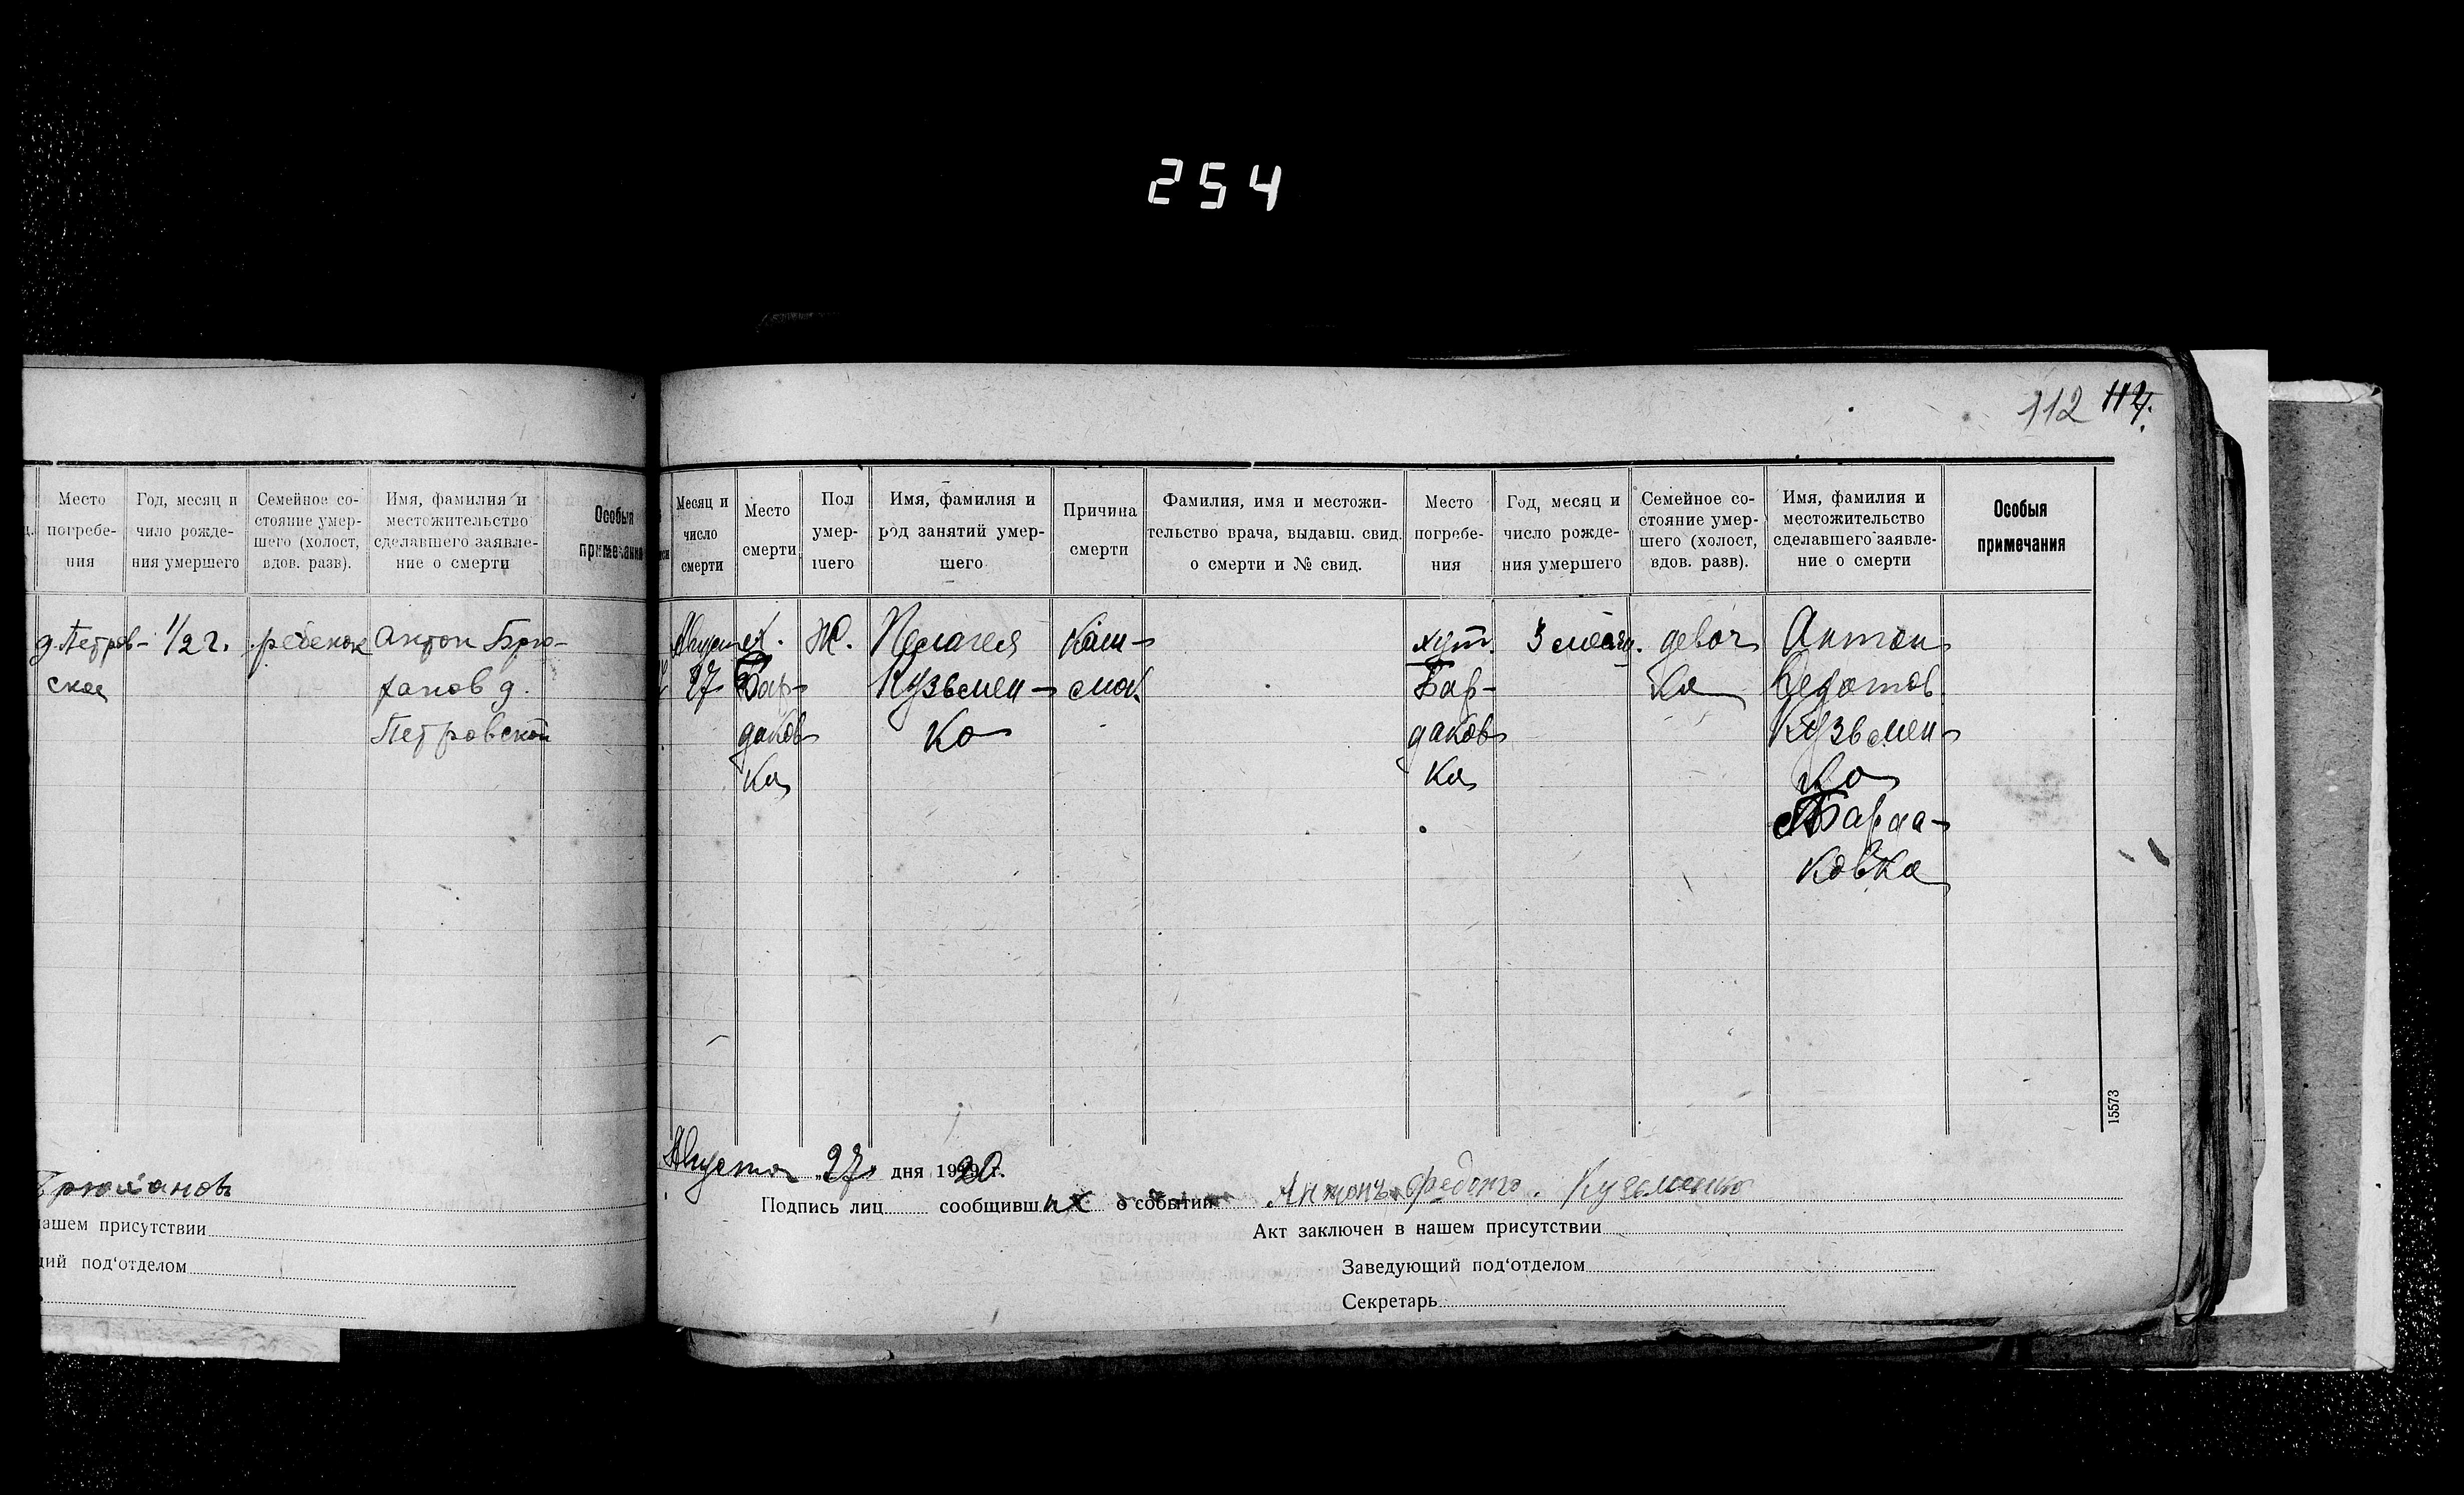 254
112 114.
Место
погребе-
ния
Год, месяц и
чило рожде-
ния умершего
Семейное со-
стояние умер-
шего (холост,
вдов. разв).
Имя, фамилия и
местожительство
сделавшего заявле-
ние о смерти
Особыя
примечания
д. Петров-
ское
1/2 г.
ребенок
Антон Брю-
ханов д.
Петровской
Брюхановъ
нашем присутствии
щий под'отделом
Месяц и
число
смерти
Место
смерти
Пол
умер-
шего
Имя, фамилия и
род занятий умер-
шего
Причина
смерти
Фамилия, имя и местожи-
тельство врача, выдавш. свид.
о смерти и № свид.
Место
погребе-
ния
Год, месяц и
число рожде-
ния умершего
Семейное со-
стояние умер-
шего (холост,
вдов. разв).
Имя, фамилия и
местожительство
сделавшего заявле-
ние о смерти
Особыя
примечания
Август
27
х.
Бар-
даков
ка
Ж.
Пелагея
Кузьмен-
ко
Каш-
хут.
Бар-
даков
ка
3 месяц.
девоч
ка
Антон
Федотов
Кузьмен-
ко
Барда-
ковка
15573
Августа 27 дня 1920 г.
Подпись лиц сообщивших о событии Антонъ Кузьменко
Акт заключен в нашем присутствии
Заведующий под'отделом
Секретарь